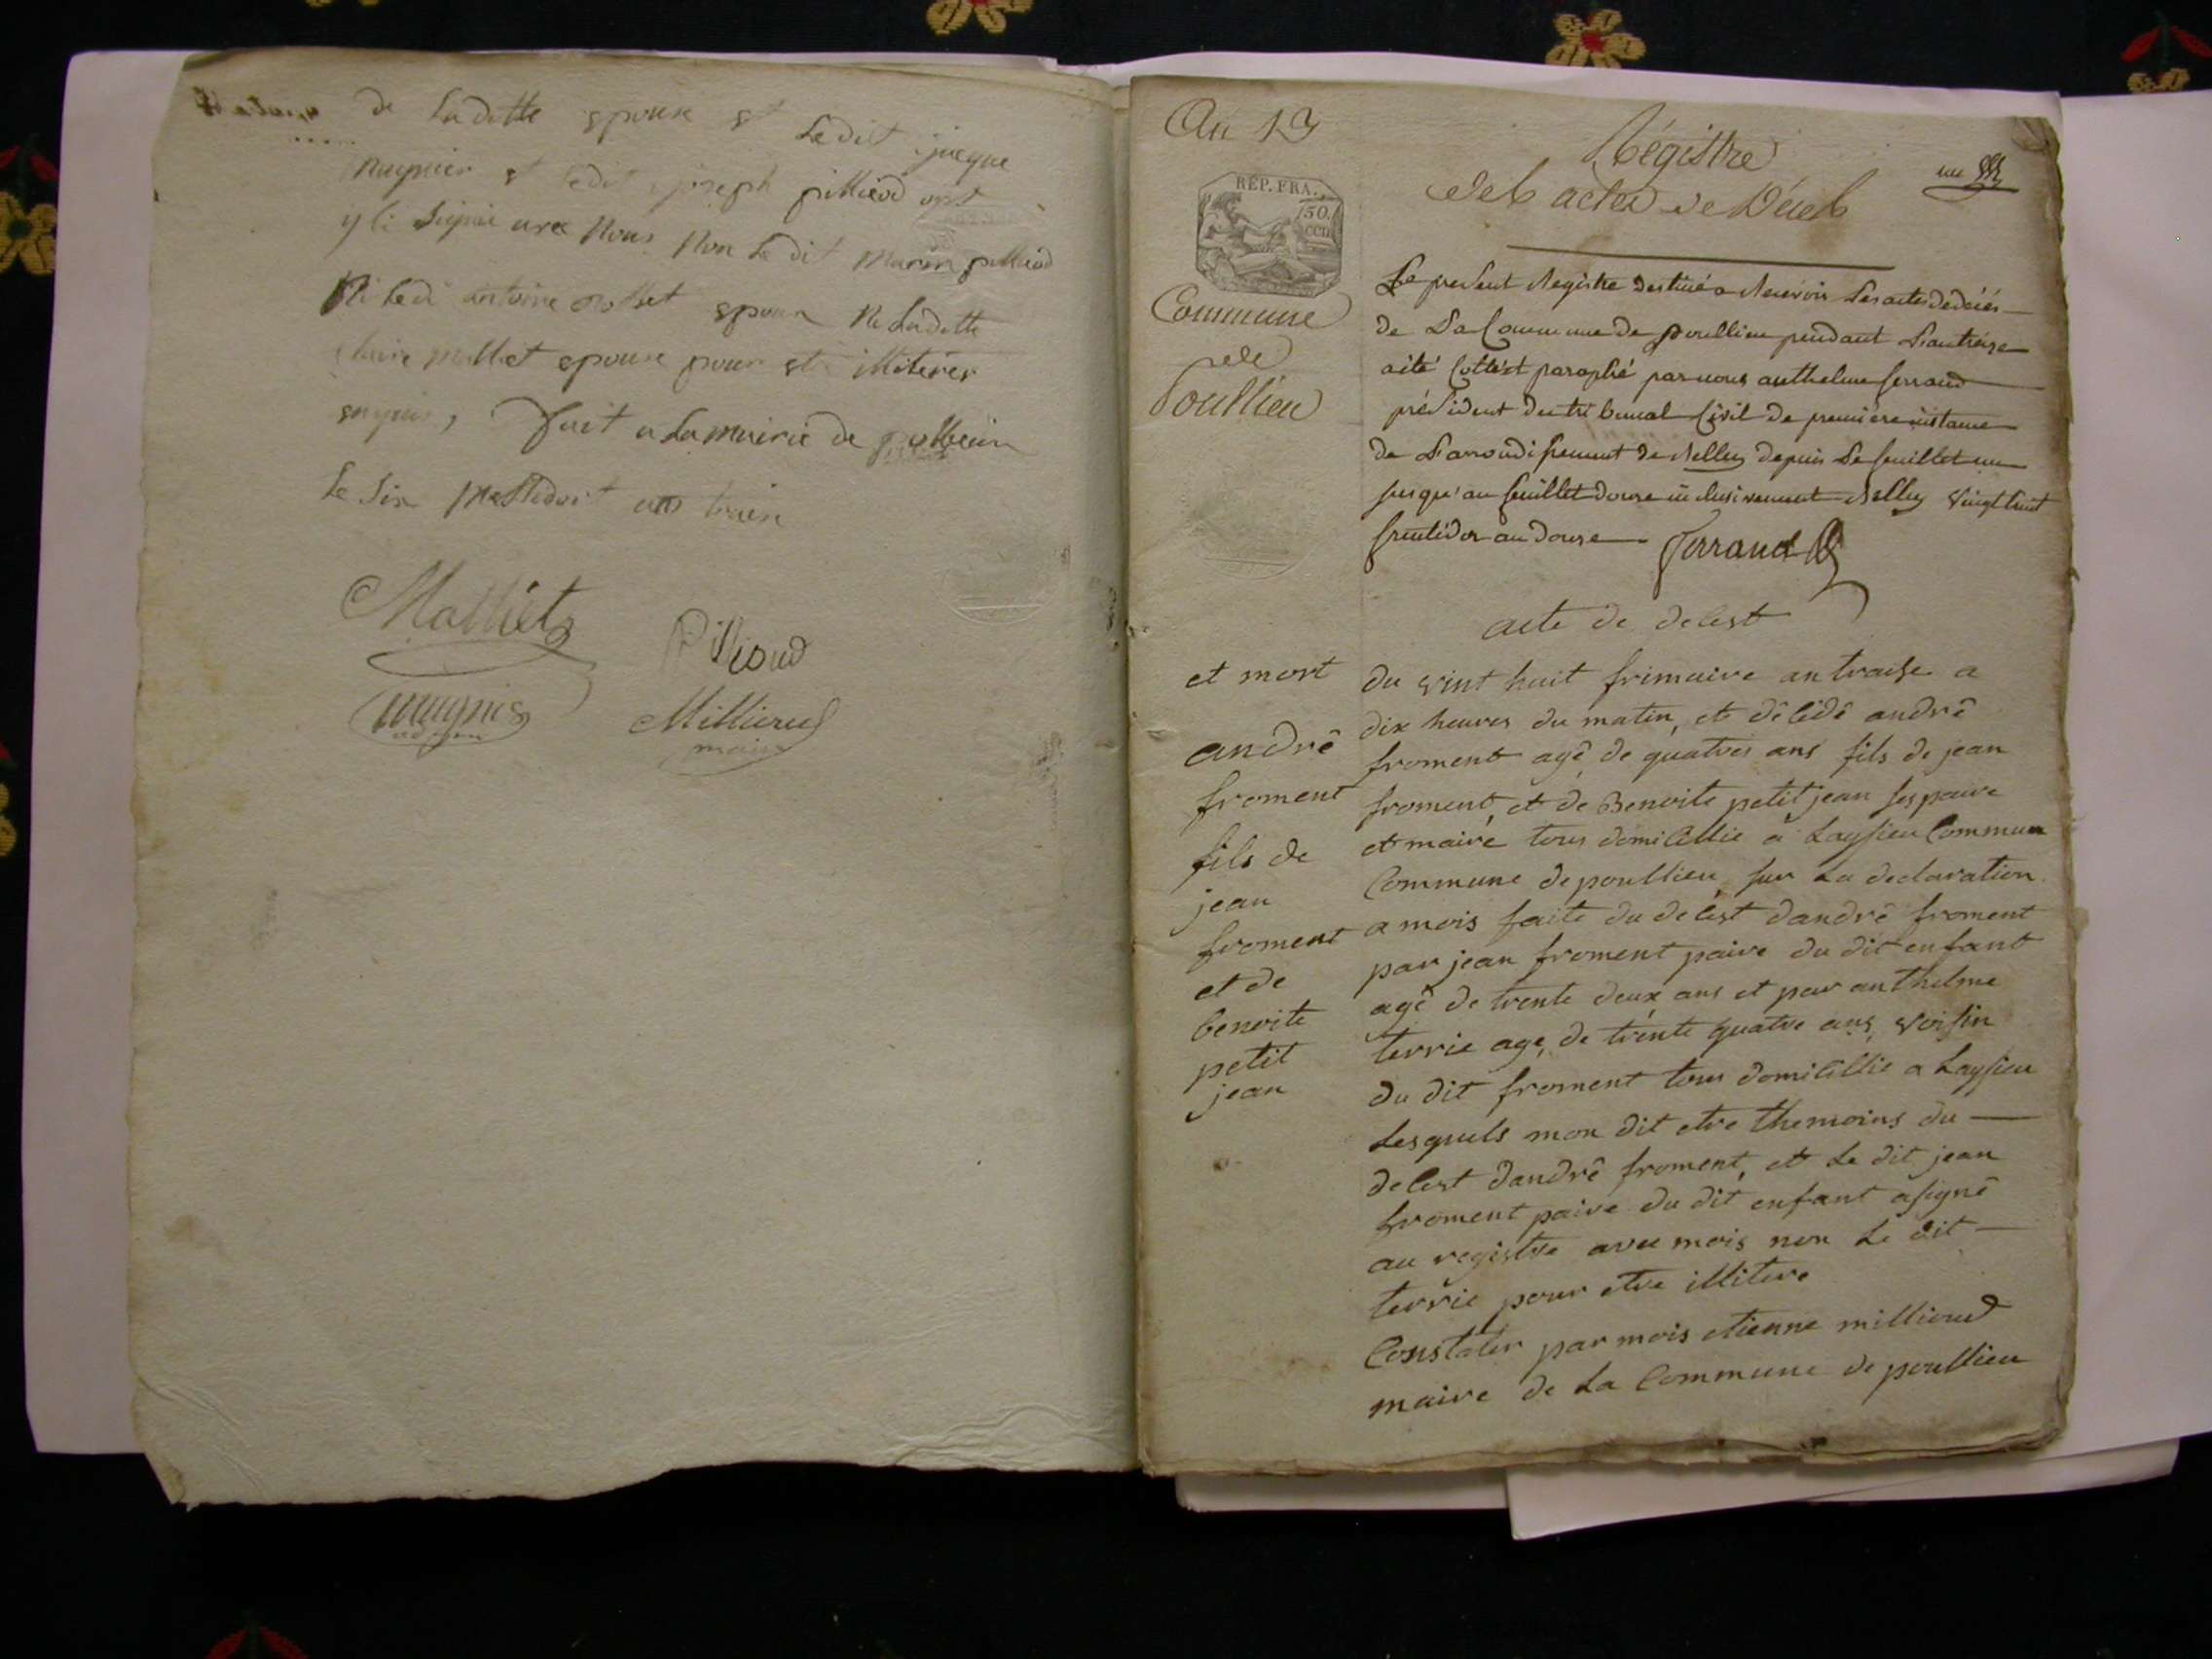 de Ladette epouse et Ledit jacque
mugnier et ledit joseph pilliod ont
yli signé avec Nous Non Ledit marin pilliod
Ni ledi antoine epoux Ni Ladette
claire molliet epouse pour etr illiterer
enquis, Fait a La mairie de
Le six Messidort ans traise
Molliet
Pillioud
mugnier
Millioud
maire
An 13
Régistre
des actes de Décès
un
RÉP. FRA.
50.
CEN.
Commune
de
Poullieu
Le present Registre destiné a Recevoir Les actes de décés
de La Commune de poullieu pendant L'an treize
a été Cotté et paraphé par nous anthelme ferrand
président du tribunal Civil de premiere instance
de L'arrondissement de Belley depuis Le feuillet un
jusqu'au feuillet douze inclusivement Belley Vingt huit
fructidor an douze Ferrand
acte de delest
et mort
andrê
froment
fils de
jean
froment
et de
benoite
petit
jean
du vint huit frimaire an traise a
dix heures du matin, et dêlêdê andrê
froment agê de quatres ans fils de jean
froment, et de Benoite petit jean ses paire
et maire tous domicillie a Laysieu Commun
Commune de poullieu, sur La declaration
a mois faite du delest dandrê froment
par jean froment paire du dit enfant
agê de trente deux ans et par anthelme
terrie age, de trente quatre ans, voisin
du dit froment tous domicillie a Laysieu
Lesquels mon dit etre themoins du
delest dandrê froment, et Le dit jean
froment paire du dit enfant a signê
au registre avec mois non Le dit
terrie pour etre illitere
Constater par mois etienne millioud
maire de La Commune de poullieu